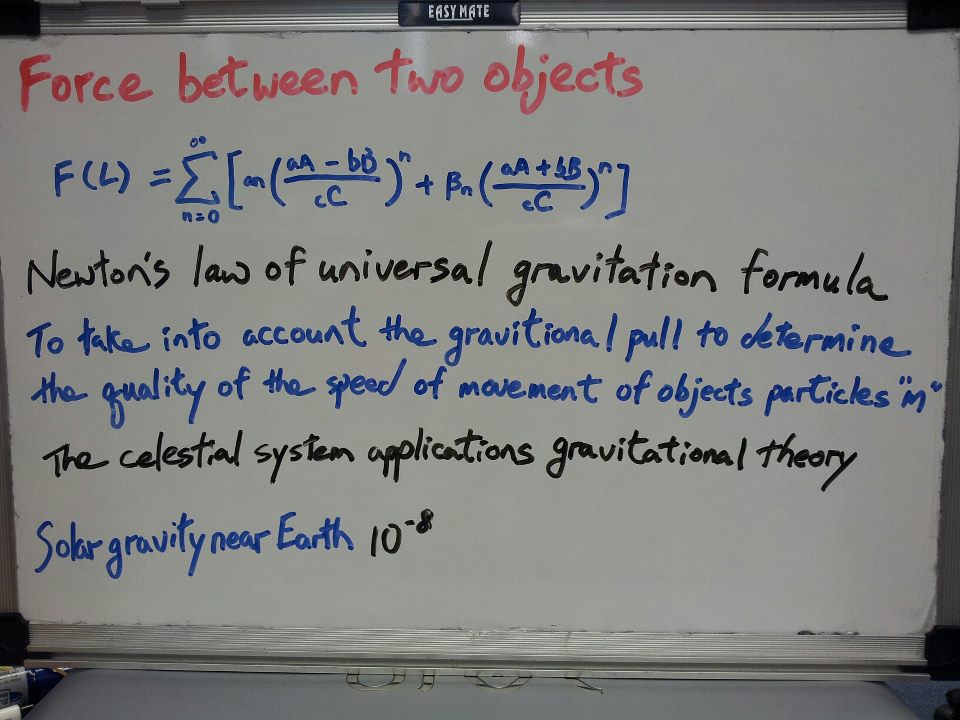 EASY MATE
Force between two objects
F(L) = ∞∑n=0 [an((aA - bB)/cC)^n + βn((aA + bB)/cC)^n]
Newton's law of universal gravitation formula
To take into account the gravitional pull to determine
the quality of the speed of movement of objects particles "m"
The celestial system applications gravitational theory
Solar gravity near Earth 10^-8